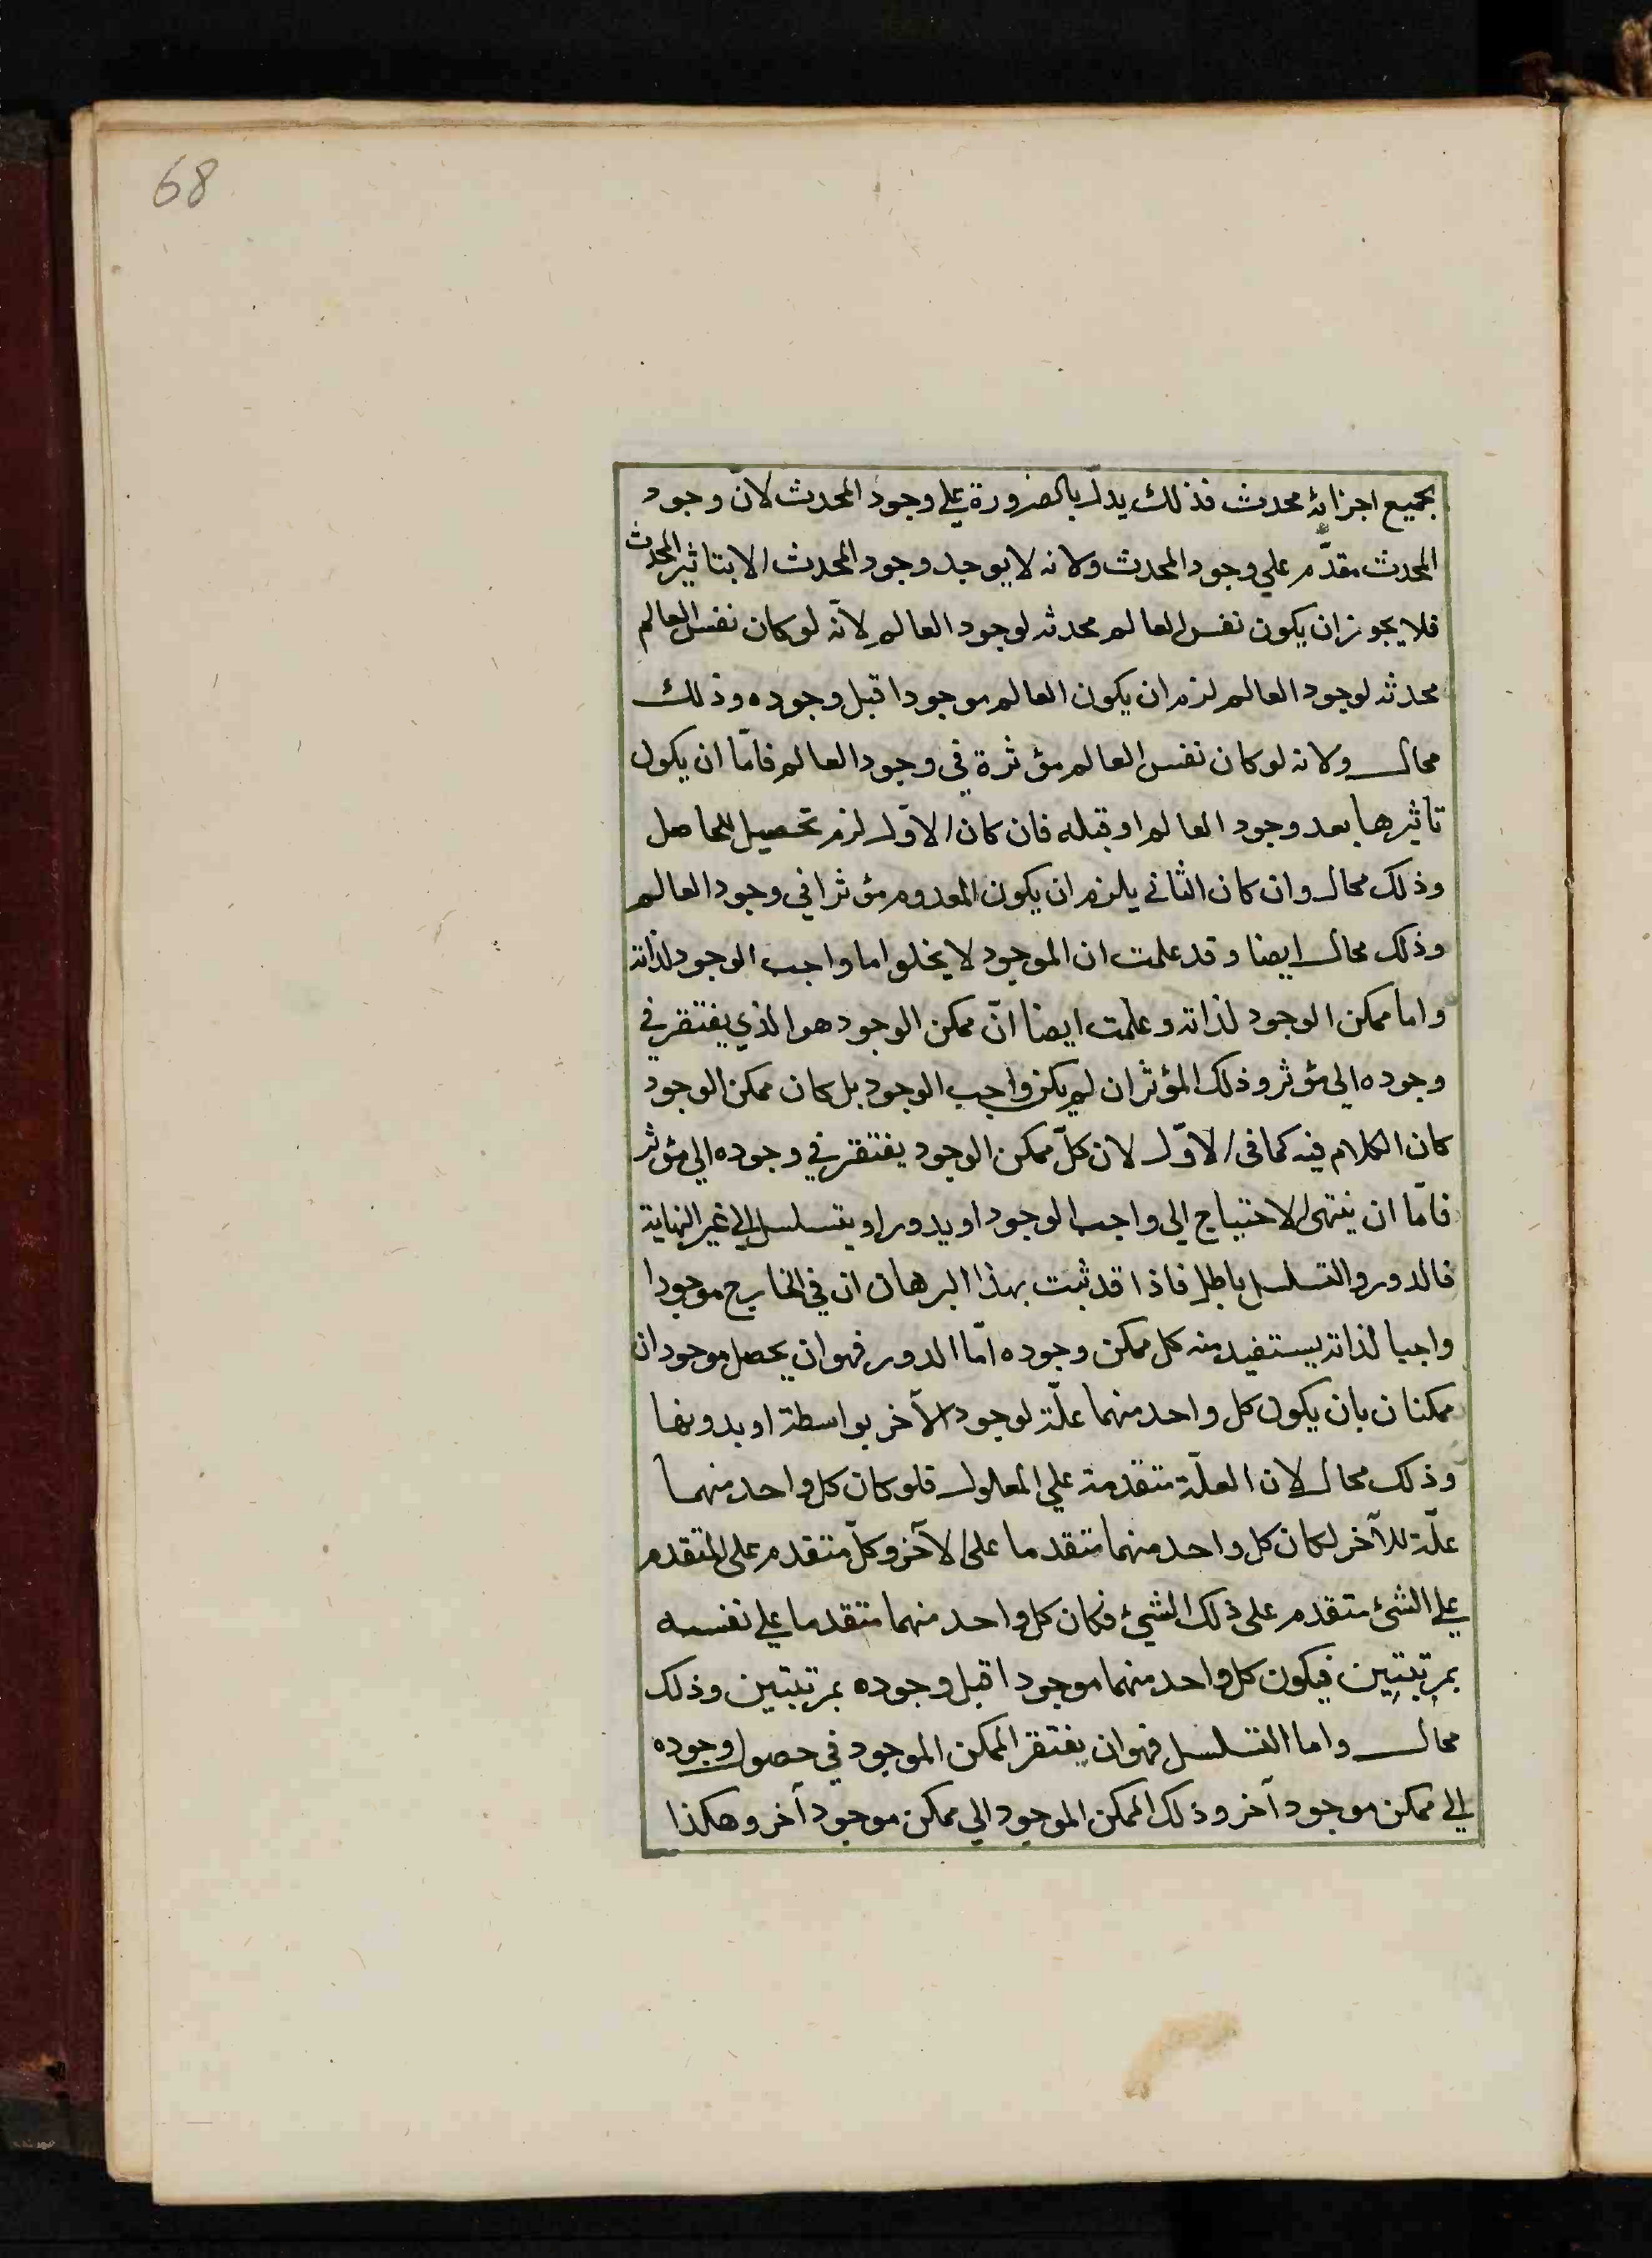 68
بجميع اجزائه محدث فذلك يدلّ بالضرورة علي وجود المحدث لانّ وجود
المحدث مقدّم علي وجود المحدث ولانه لا يوجد وجود المحدث الا بتاثير المحدث
فلا يجوز ان يكون نفس العالم محدثه لوجود العالم لانّه لو كان نفس العالم
محدثه لوجود العالم لزم ان يكون العالم موجودا قبل وجوده وذلك
محال ولانه لو كان نفس العالم مؤثرة في وجود العالم فامّا ان يكون
تاثيرها بعد وجود العالم او قبله فان كان الاوّل لزم تحصيل الحاصل
وذلك محال وان كان الثاني يلزم ان يكون المعدوم مؤثرا في وجود العالم
وذلك محال ايضا وقد علمت ان الموجود لا يخلو اما واجب الوجود لذاته
واما ممكن الوجود لذاته وعلمت ايضا انّ ممكن الوجود هو الذي يفتقر في
وجوده الي مؤثر وذلك المؤثر ان لم يكن واجب الوجود بل كان ممكن الوجود
كان الكلام فيه كما في الاوّل لان كلّ ممكن الوجود يفتقر في وجوده الي مؤثر
فامّا ان ينتهي الاحتياج الي واجب الوجود او يدور او يتسلسل الي غير النهاية
فالدور والتسلسل باطل فاذا قد ثبت بهذا البرهان ان في الخارج موجودا
واجبا لذاته يستفيد منه كل ممكن وجوده امّا الدور فهو ان يحصل موجودان
ممكنان بان يكون كل واحد منهما علّة لوجود الآخر بواسطة او بدونها
وذلك محال لان العلّة متقدمة علي المعلول فلو كان كل واحد منهما
علّة للآخر لكان كل واحد منهما متقدما على الآخر وكلّ متقدم على المتقدم
علي الشئ متقدم على ذلك الشئ فكان كل واحد منهما متقدما علي نفسه
بمرتبتين فيكون كل واحد منهما موجودا قبل وجوده بمرتبتين وذلك
محال واما التسلسل فهو ان يفتقر الممكن الموجود في حصول وجوده
الي ممكن موجود آخر وذلك الممكن الموجود الي ممكن موجود آخر وهكذا